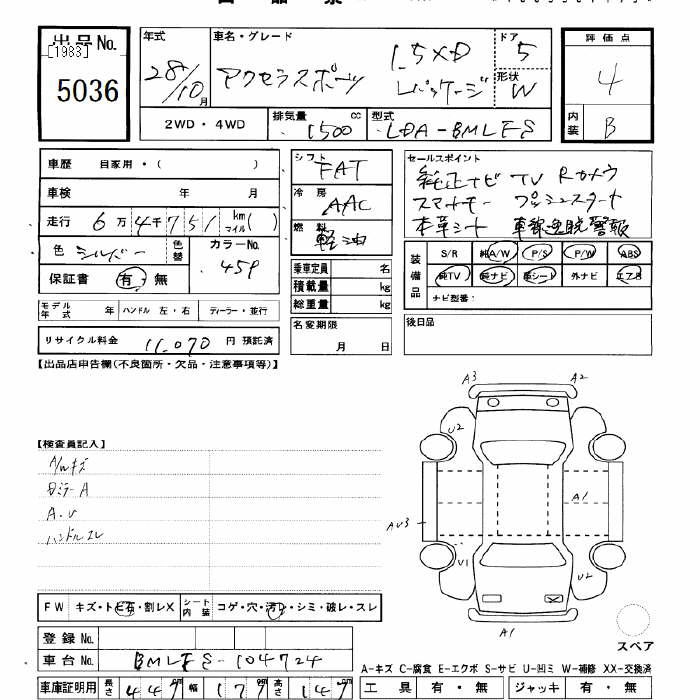 出品No.
[1983]
5036
年式
28/10月
車名・グレード
アクセラスポーツ
1.5XD
Lパッケージ
ドア
5
形状
W
評価点
4
内装
B
2WD・4WD
排気量 1500 cc
型式 LDA-BM
車歴 自家用・( )
車検 年 月
走行 6万4千751 km マイル( )
色 シルバー 色替
カラーNo.
45P
保証書 有・無
モデル年式 年 ハンドル 左・右 ディーラー・並行
リサイクル料金 11,070 円 預託済
シフト
FAT
冷房
AAC
燃料
軽油
乗車定員 名
積載量 kg
総重量 kg
名変期限
月 日
セールスポイント
純正ナビ TV Rカメラ
スマートキー プッシュスタート
本革シート 車線逸脱警報
装備品
S/R 純A/W P/S P/W ABS
純TV 純ナビ 革シート 外ナビ エアB
ナビ型番:
後日品
【出品店申告欄(不良箇所・欠品・注意事項等)】
【検査員記入】
A/Wキズ
Dミラー A
A.U
ハンドルスレ
A3
A2
U2
A1
AU3
U1
U2
A1
スペア
FW キズ・トビ石・割レX
シート内装 コゲ・穴・汚レ・シミ・破レ・スレ
登録No.
車台No. 104724
車庫証明用 長さ 447 cm 幅 179 cm 高さ 147 cm
A-キズ C-腐食 E-エクボ S-サビ U-凹ミ W-補修 XX-交換済
工具 有・無 ジャッキ 有・無